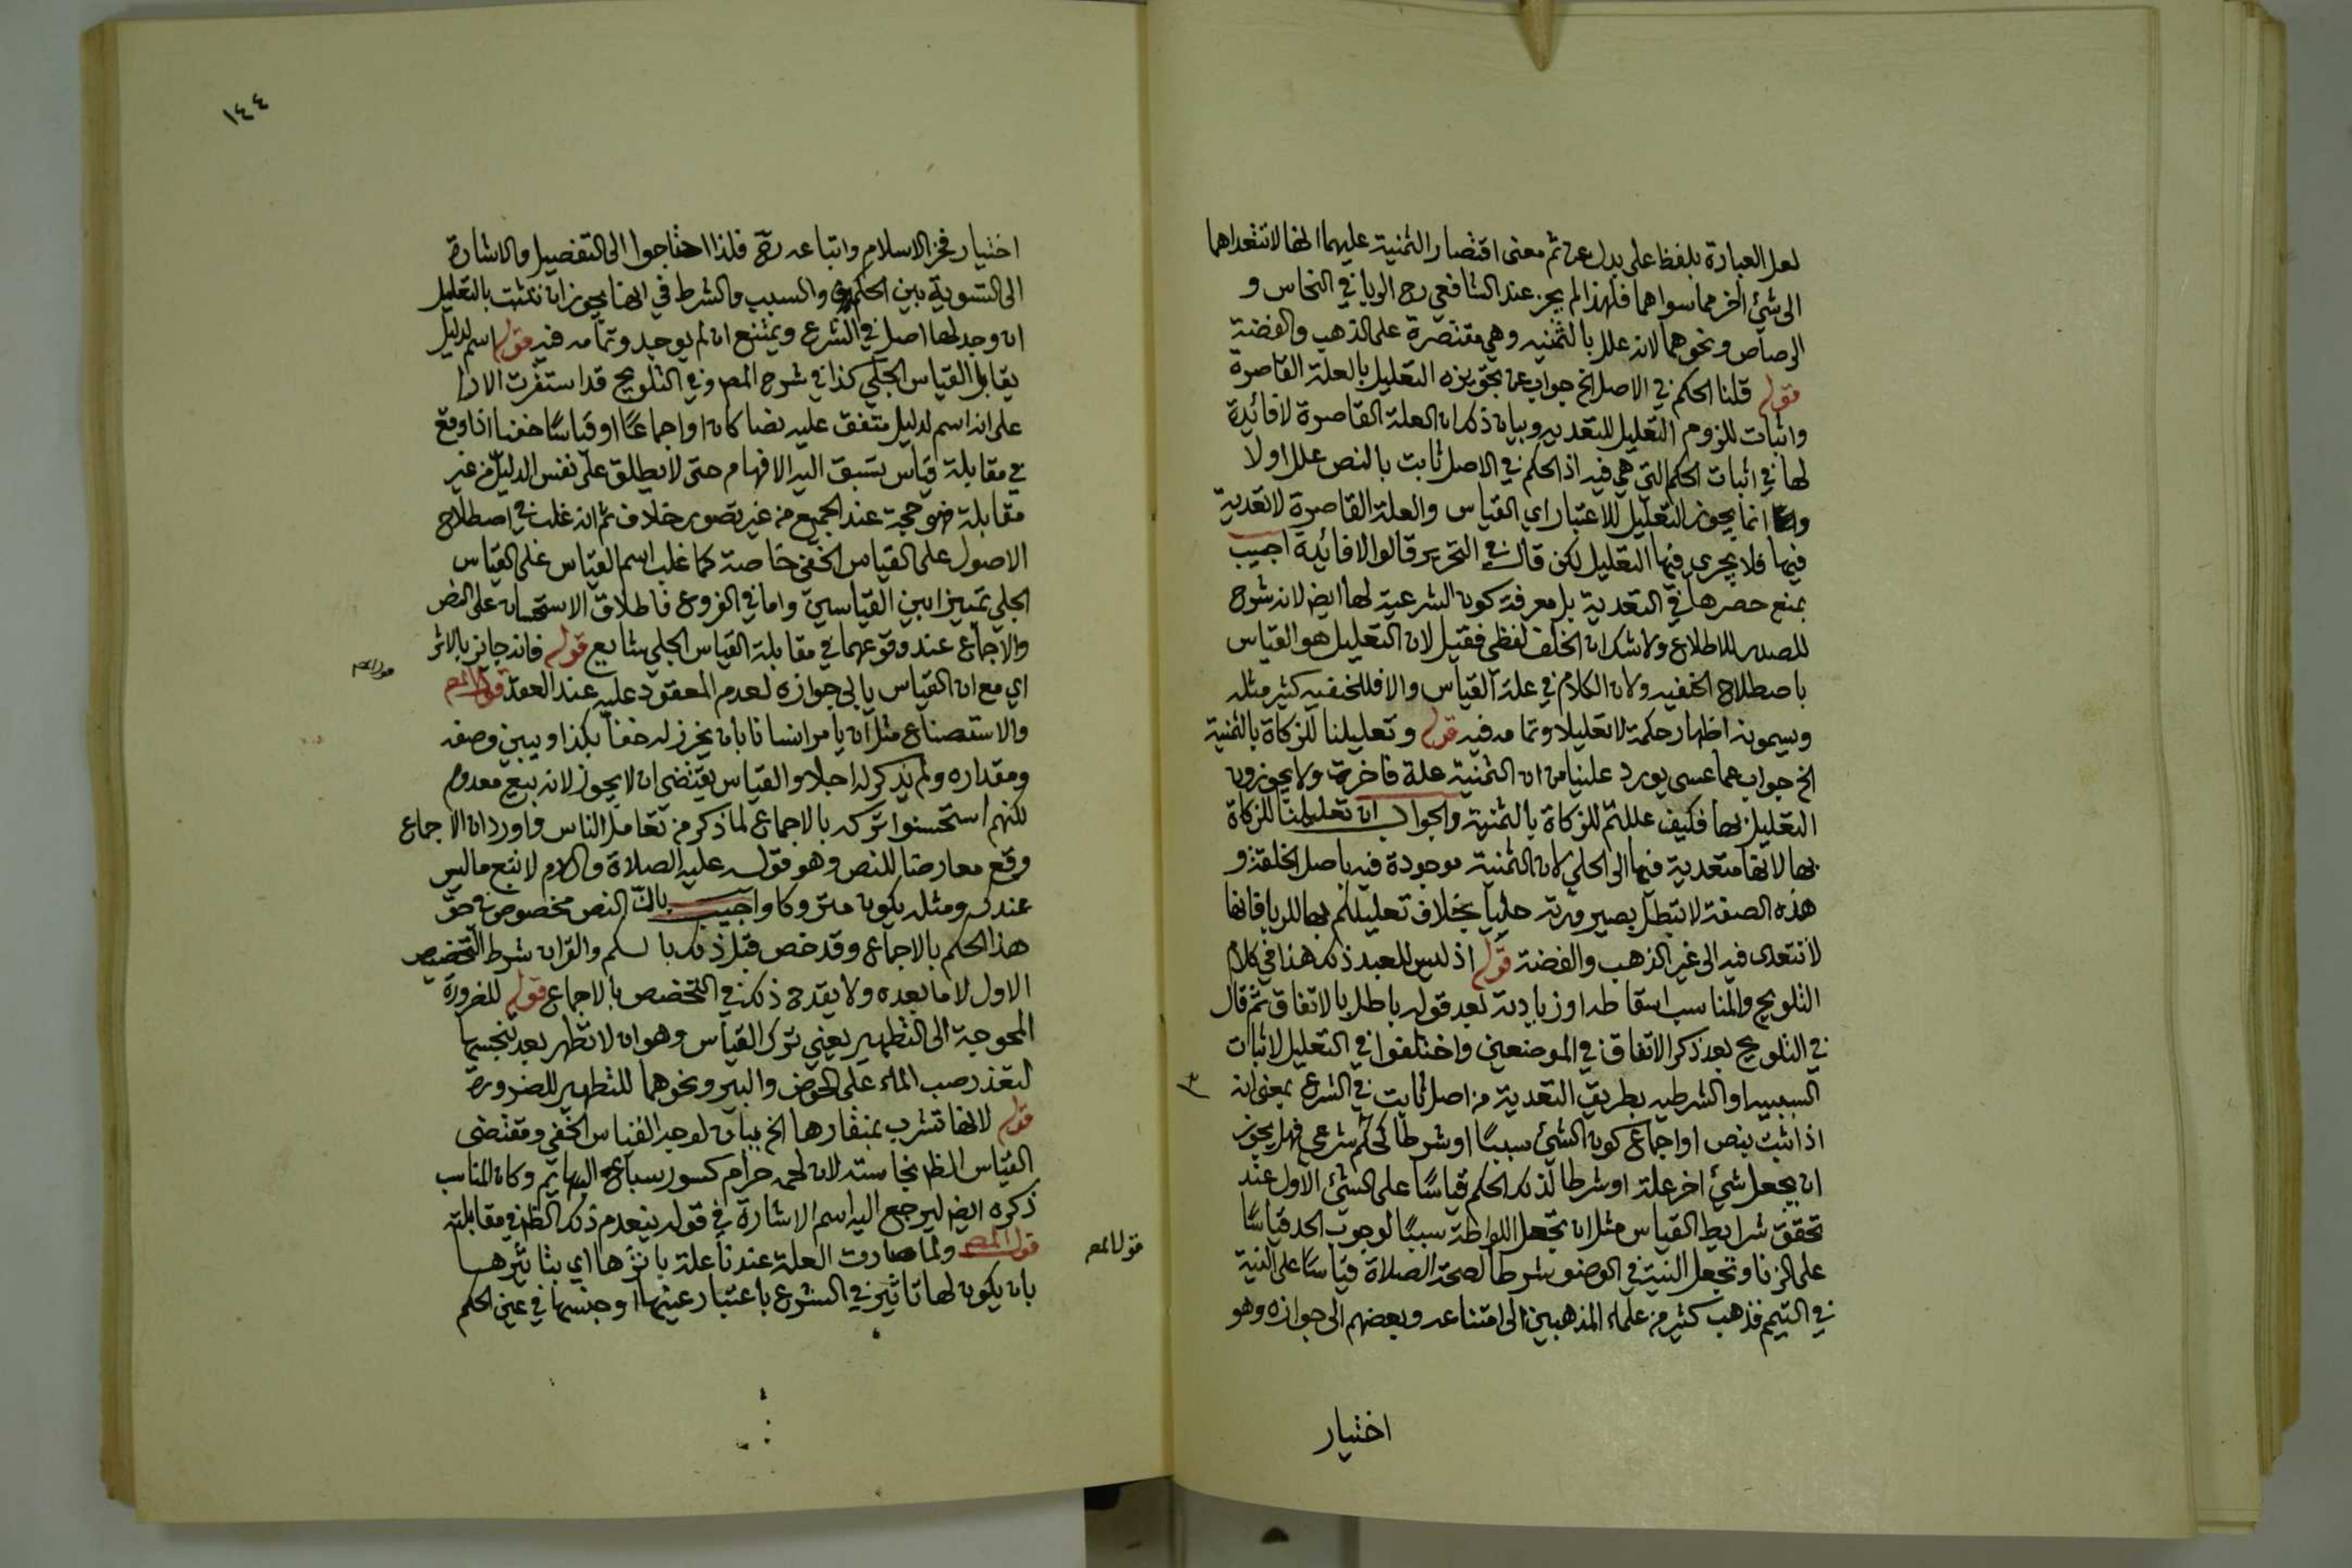 لعل العبارة بلفظ على بدل عن ثم معنى اقتصار الثمنية عليهما انها لا تتعداهما
الى شئ اخر مما سواهما فلهذا لم يجز عند الشافعي رح الربا في النحاس و
الرصاص ونحوهما لانه علل بالثمنيه وهي مقتصرة على الذهب والفضة
قوله قلنا الحكم في الاصل الخ جواب عن تجويزه التعليل بالعلة القاصرة
واثبات للزوم التعليل للتعديه وبيان ذلك ان العلة القاصرة لا فائدة
لها في اثبات الحكم التي هي فيه اذ الحكم في الاصل ثابت بالنص علل اولا
وانما يجوز التعليل للاعتبار اي القياس والعلة القاصرة لا تعدية
فيها فلا يجرى فيها التعليل لكن قال في التحرير قالوا لا فائدة اجيب
بمنع حصرها في التعدية بل معرفة كون الشرعية لها ايض لانه شرح
للصدر للاطلاع ولا شك ان الخلف لفظي فقيل لان التعليل هو القياس
باصطلاح الحنفيه ولان الكلام في علة القياس والا فللحنفيه كثير مثله
ويسمونه اظهار حكمة لا تعليلا وتمامه فيه قوله وتعليلنا للزكاة بالثمنية
الخ جواب عما عسى يورد علينا من ان الثمنية علة قاصرة ولا يجوزون
التعليل بها فكيف عللتم للزكاة بالثمنية والجواب ان تعليلنا للزكاة
بها لانها متعدية فيها الى الحلي لان الثمنية موجودة فيه باصل الخلقة و
هذه الصفة لا تبطل بصيرورته حليا بخلاف تعليلكم بها للربا فانها
لا تتعدى فيه الى غير الذهب والفضة قوله اذ ليس للعبد ذلك هنا في كلام
التلويح والمناسب اسقاطه او زيادته بعد قوله باطل بالاتفاق ثم قال
في التلويح بعد ذكر الاتفاق في الموضعين واختلفوا في التعليل لاثبات
السببيه او الشرطيه بطريق التعدية من اصل ثابت في الشرع بمعنى انه
اذا ثبت بنص او اجماع كون الشئ سببًا او شرطا لحكم شرعي فهل يجوز
ان يجعل شئ اخر علة او شرطا لذلك الحكم قياسًا على الشئ الاول عند
تحقق شرايط القياس مثل ان تجعل اللواطة سببًا لوجوب الحد قياسًا
على الزنا وتجعل النية في الوضوء شرطا لصحة الصلاة قياسًا على النية
في التيمم فذهب كثير من علماء المذهبين الى امتناعه وبعضهم الى جوازه وهو
اختيار
١٤٤
اختيار فخر الاسلام واتباعه رح فلذا احتاجوا الى التفصيل والاشارة
الى التسوية بين الحكم والسبب والشرط في انها يجوز ان تثبت بالتعليل
ان وجد لها اصل في الشرع ويمتنع ان لم يوجد وتمامه فيه قوله اسم لدليل
يقابل القياس الجلي كذا في شرح المص وفي التلويح قد استقرت الارا
على انه اسم لدليل متفق عليه نصا كان او اجماعًا او قياسًا خفيا اذا وقع
في مقابلة قياس تسبق اليه الافهام حتى لا يطلق على نفس الدليل من غير
مقابلة فهو حجة عند الجميع من غير تصور خلاف ثم انه غلب في اصطلاح
الاصول على القياس الخفي خاصة كما غلب اسم القياس على القياس
الجلي تمييزا بين القياسين واما في الفروع فاطلاق الاستحسان على النص
والاجماع عند وقوعهما في مقابلة القياس الجلي شايع قوله فانه جايز بالاثر
اي مع ان القياس يابى جوازه لعدم المعقود عليه عند العقد قول المص
والاستصناع مثل ان يامر انسانا بان يخرز له خفا بكذا ويبين وصفه
ومقداره ولم يذكر له اجلا والقياس يقتضي ان لا يجوز لانه بيع معدوم
لكنهم استحسنوا تركه بالاجماع لما ذكر من تعامل الناس واورد ان الاجماع
وقع معارضا للنص وهو قوله عليه الصلاة والسلام لا تبع ما ليس
عندك ومثله يكون متروكا واجيب بان النص مخصوص في حق
هذا الحكم بالاجماع وقد خص قبل ذلك بالسلم والقران شرط التخصيص
الاول لا ما بعده ولا يقدح ذلك في التخصيص بالاجماع قوله للضرورة
المحوجة الى التطهير يعني ترك القياس وهو ان لا تطهر بعد تنجسها
لتعذر صب الماء على الحوض والبير ونحوهما للتطهير للضرورة
قوله لانها تشرب بمنقارها الخ بيان لوجه القياس الخفي ومقتضى
القياس الظ نجاسته لان لحمه حرام كسور سباع البهايم وكان المناسب
ذكره ايض ليرجع اليه اسم الاشارة في قوله ينعدم ذلك الظ في مقابلته
قول المص ولما صارت العلة عندنا علة باثرها اي بتاثيرها
بان يكون لها تاثير في الشرع باعتبار عينها او جنسها في عين الحكم
قول المص
قول المص